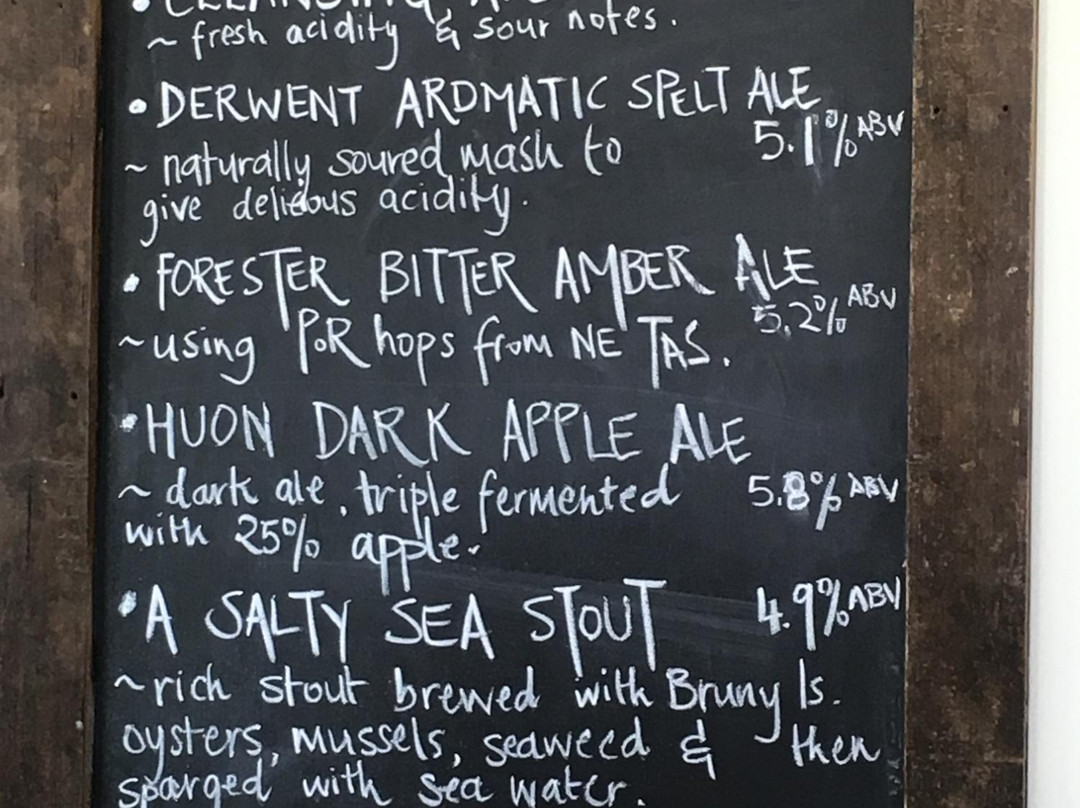 ~ fresh acidity & sour notes.
• DERWENT AROMATIC SPELT ALE
5.1% ABV
~ naturally soured mash to
give delicious acidity.
• FORESTER BITTER AMBER ALE
5.2% ABV
~ using PoR hops from NE TAS.
• HUON DARK APPLE ALE
~ dark ale, triple fermented 5.8% ABV
with 25% apple.
• A SALTY SEA STOUT 4.9% ABV
~ rich stout brewed with Bruny Is.
oysters, mussels, seaweed & then
sparged with sea water.